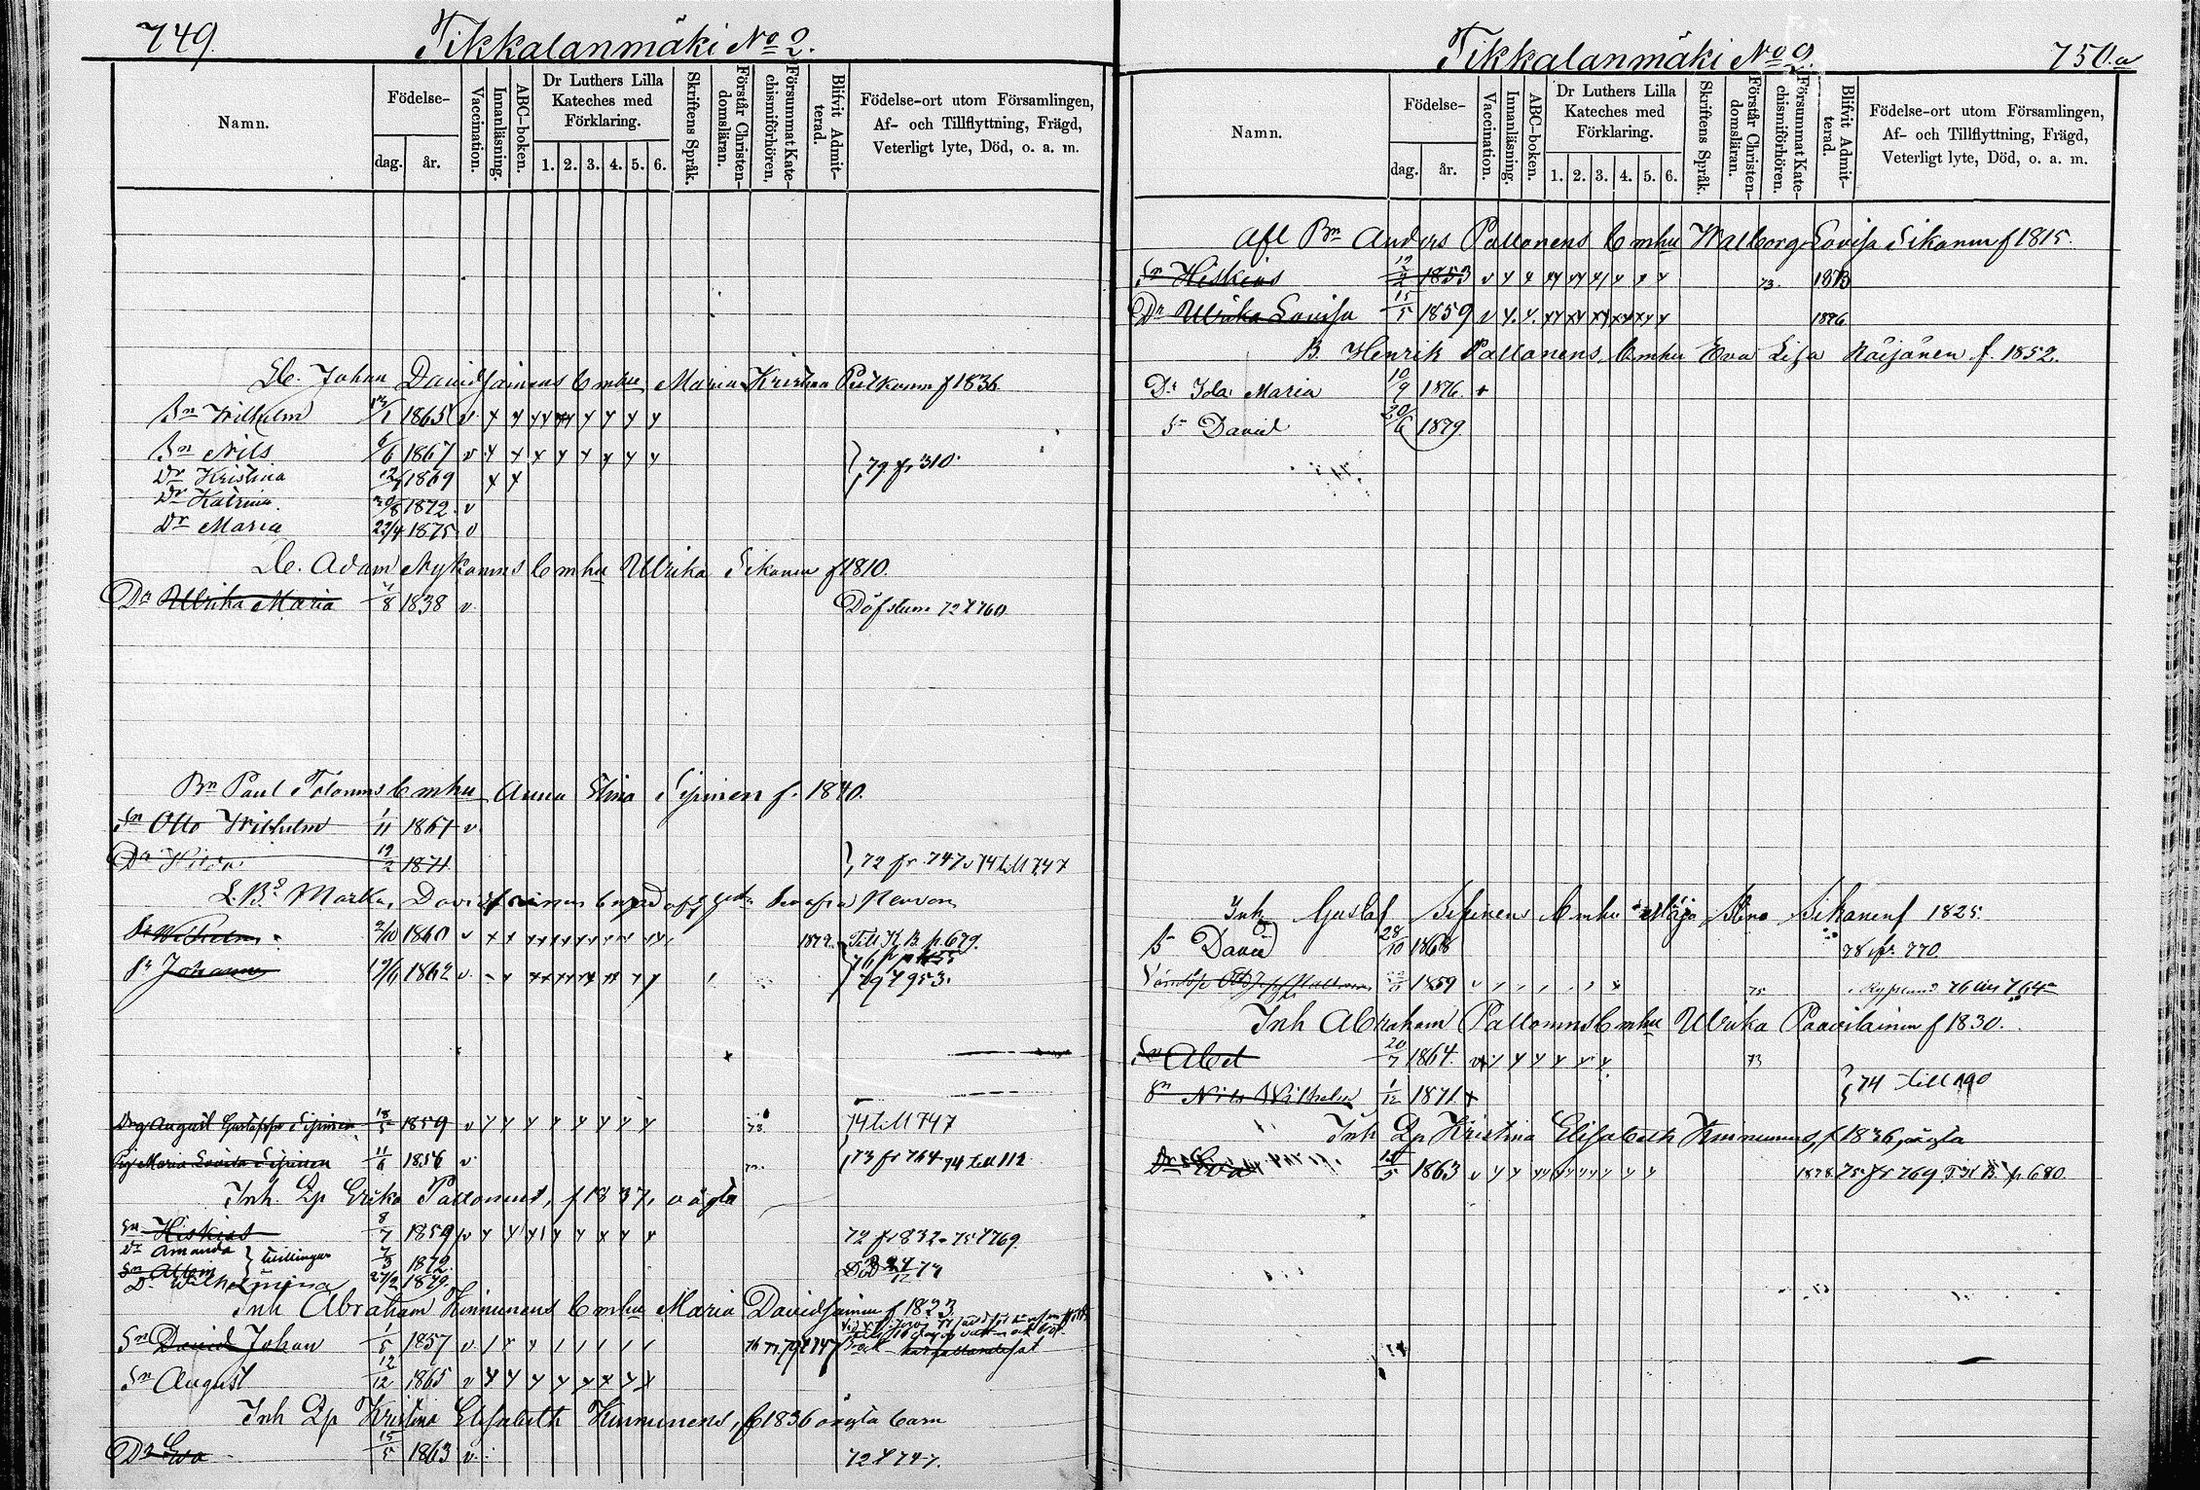 749.
Tikkalanmäki No 2.
Namn.
Födelse-
dag. år.
Vaccination.
Innanläsning.
ABC-boken.
Dr Luthers Lilla Kateches med Förklaring.
1. 2. 3. 4. 5. 6.
Skriftens Språk.
Förstår Christendomsläran.
Försummat Katechismiförhören.
Blifvit Admitterad.
Födelse-ort utom Församlingen,
Af- och Tillflyttning, Frägd,
Veterligt lyte, Död, o. a. m.
Johan Davidsainens b m hu Maria Kristina f 1836
Sn Wilhelm 1865 v
Sn Nils 6/6 1867 v
79 fr 310.
Dr Kristina 1869
Dr Katrina 1872 v
Dr Maria 22/4 1875 v
Adam Nykänens b m hu Ulrika Sikanen f 1810.
Dr Ulrika Maria 1838 v Döfstum 72 t 760
Bn Paul b m hu Anna Stina Sipinen f. 1840.
Sn Otto Wilhelm 1/11 1861 v
Dr 19/2 1871 72 fr 747 74 till 747
Sn Wilhelm 1860 v 1879 Till K B p. 679.
Sn Johannes 1862 v 79 t 953.
Drg August Gustafsson Sipinen 18/5 1859 v 74 till 747
Pig Maria Lovisa Sipinen 11/6 1856 v 73 fr 764 74 till 112
Inh. Qp Erika Pallonens, f 1837, oägta
Sn Hiskias 8/7 1859 v 72 fr 832 75 t 769
Dr Amanda
Sn Adam } tvillingar 7/3 1872. Död 74
Dr Wilhelmina 27/2 1879.
Inh Abraham Kinnunens b m hu Maria Davidsainen f 1823
Sn David Johan 1/5 1857 v
Sn August 12/12 1865 v
Inh Qp Kristina Elisabeth Kinnunens, f 1836 oägta barn
Dr Eva 15/5 1863 v 72 t 747.
Tikkalanmäki No 2.
750.a
Namn.
Födelse-
dag. år.
Vaccination.
Innanläsning.
ABC-boken.
Dr Luthers Lilla Kateches med Förklaring.
1. 2. 3. 4. 5. 6.
Skriftens Språk.
Förstår Christendomsläran.
Försummat Katechismiförhören.
Blifvit Admitterad.
Födelse-ort utom Församlingen,
Af- och Tillflyttning, Frägd,
Veterligt lyte, Död, o. a. m.
Afl Bn Anders Pallonens b m hu Walborg Lovisa Sikanen f 1815.
Sn Hiskias 1853 v 73. 1873
Dr Ulrika Lovisa 15/5 1859 v 1876
B. Henrik Pallonens b m hu Eva Lisa Räijänen f. 1852.
Dr Ida Maria 10/9 1876.
Sn David 20/6 1879.
Inh Gustaf Sipinens b m hu Maja Stina Sikanen f 1825.
Sn David 28/10 1868 78 fr. 770.
1859 v 75 76 till 764
Inh Abraham Pallonens b m hu Ulrika Paavilainen f 1830.
Sn Abel 20/7 1864. 73
74 till 190
Sn Nils Wilhelm 1/12 1871
Inh Qp Kristina Elisabeth Kinnunens, f 1836, oägta
Dr Eva 15/5 1863 v 1878. 75 fr 769 T. K B. p 680.